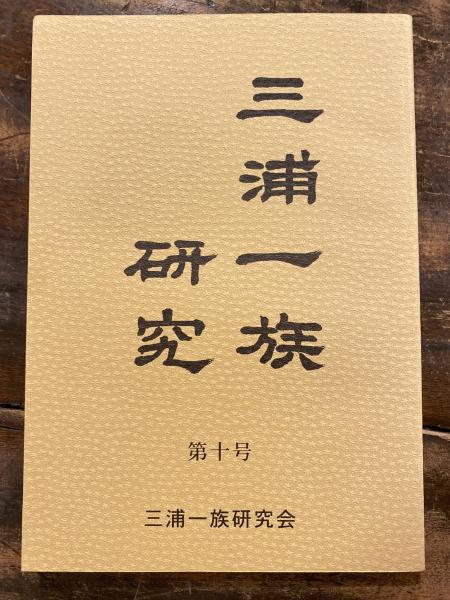 三浦一族
研究
第十号
三浦一族研究会